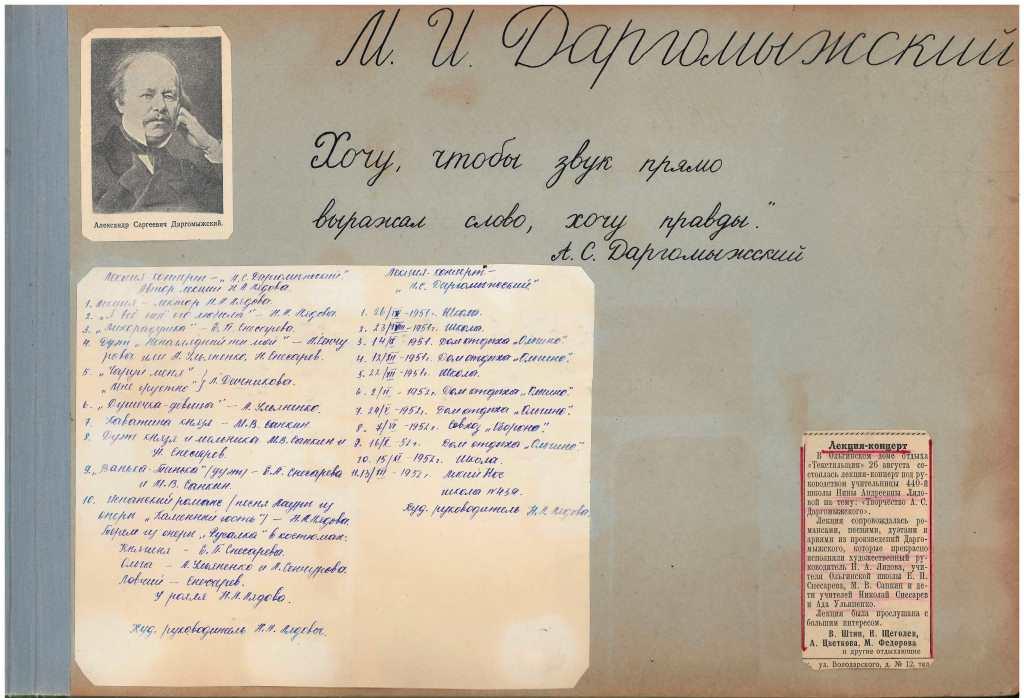 М. И. Даргомыжский
Александр Сергеевич Даргомыжский.
Хочу, чтобы звук прямо
выражал слово, хочу правды."
А. С. Даргомыжсский
Лекция концерт – „А.С. Даргомыжский"
Автор лекции Н.А. Лядова.
1. Лекция – лектор Н.А. Лядова.
2. „Я всё ещё его люблю" – Н.А. Лядова
3. „Лихорадушка" – Е.П. Снесарева.
4. Дуэт „Ненаглядный ты мой" – Л. Сенчу
рова или А. Ульяненко, Н. Снесарев.
5. „Чаруй меня"
„Мне грустно"
6. „Душечка-девица" – А. Ульяненко.
7. Каватина князя – М.В. Санкин
8. Дуэт князя и мельника М.В. Санкин и
Н. Снесарев.
9. „Ванька-Танька" (дуэт) – Е.П. Снесарева
и М.В. Санкин.
10. Испанский романс (песня Лауры из
оперы „Каменный гость") – Н.А. Лядова.
из оперы „Русалка" в костюмах:
Княгиня – Е.П. Снесарева.
Ольга – А. Ульяненко и Л. Сенчурова
Ловчий – Снесарев.
У рояля Н.А. Лядова.
Худ. руководитель Н.А. Лядова.
Лекция-концерт –
„А.С. Даргомыжский"
1. 26/IX – 1951г. Школа.
2. 23/ – 1951г. Школа.
3. 14/ – 1951. Дом отдыха „Ольгино".
4. 13/ – 1951г. Дом отдыха „Ольгино".
5. 22/ – 1951. Школа.
6. 2/ – 1952г. Дом отдыха „Ольгино".
7. 24/ – 1952. Дом отдыха „Ольгино".
8. 7/ – 1952г. Совхоз „Оборона".
9. 16/ – 52г. Дом отдыха „Ольгино"
10. 15/ – 1952г. Школа.
11. 13/ – 1952. Лисий Нос
школа № 439.
Худ. руководитель Н.А. Лядова.
Лекция-концерт
В Ольгинском доме отдыха
«Текстильщик» 26 августа со-
стоялась лекция-концерт под ру-
ководством учительницы 440-й
школы Нины Андреевны Лядо-
вой на тему: «Творчество А. С.
Даргомыжского».
Лекция сопровождалась ро-
мансами, песнями, дуэтами и
ариями из произведений Дарго-
мыжского, которые прекрасно
исполняли художественный ру-
ководитель Н. А. Лядова, учи-
теля Ольгинской школы Е. П.
Снесарева, М. В. Санкин и де-
ти учителей Николай Снесарев
и Ада Ульяненко.
Лекция была прослушана с
большим интересом.
В. Штин, И. Щеголев,
А. Цветкова, М. Федорова
и другие отдыхающие
ул. Володарского, д. № 12, тел